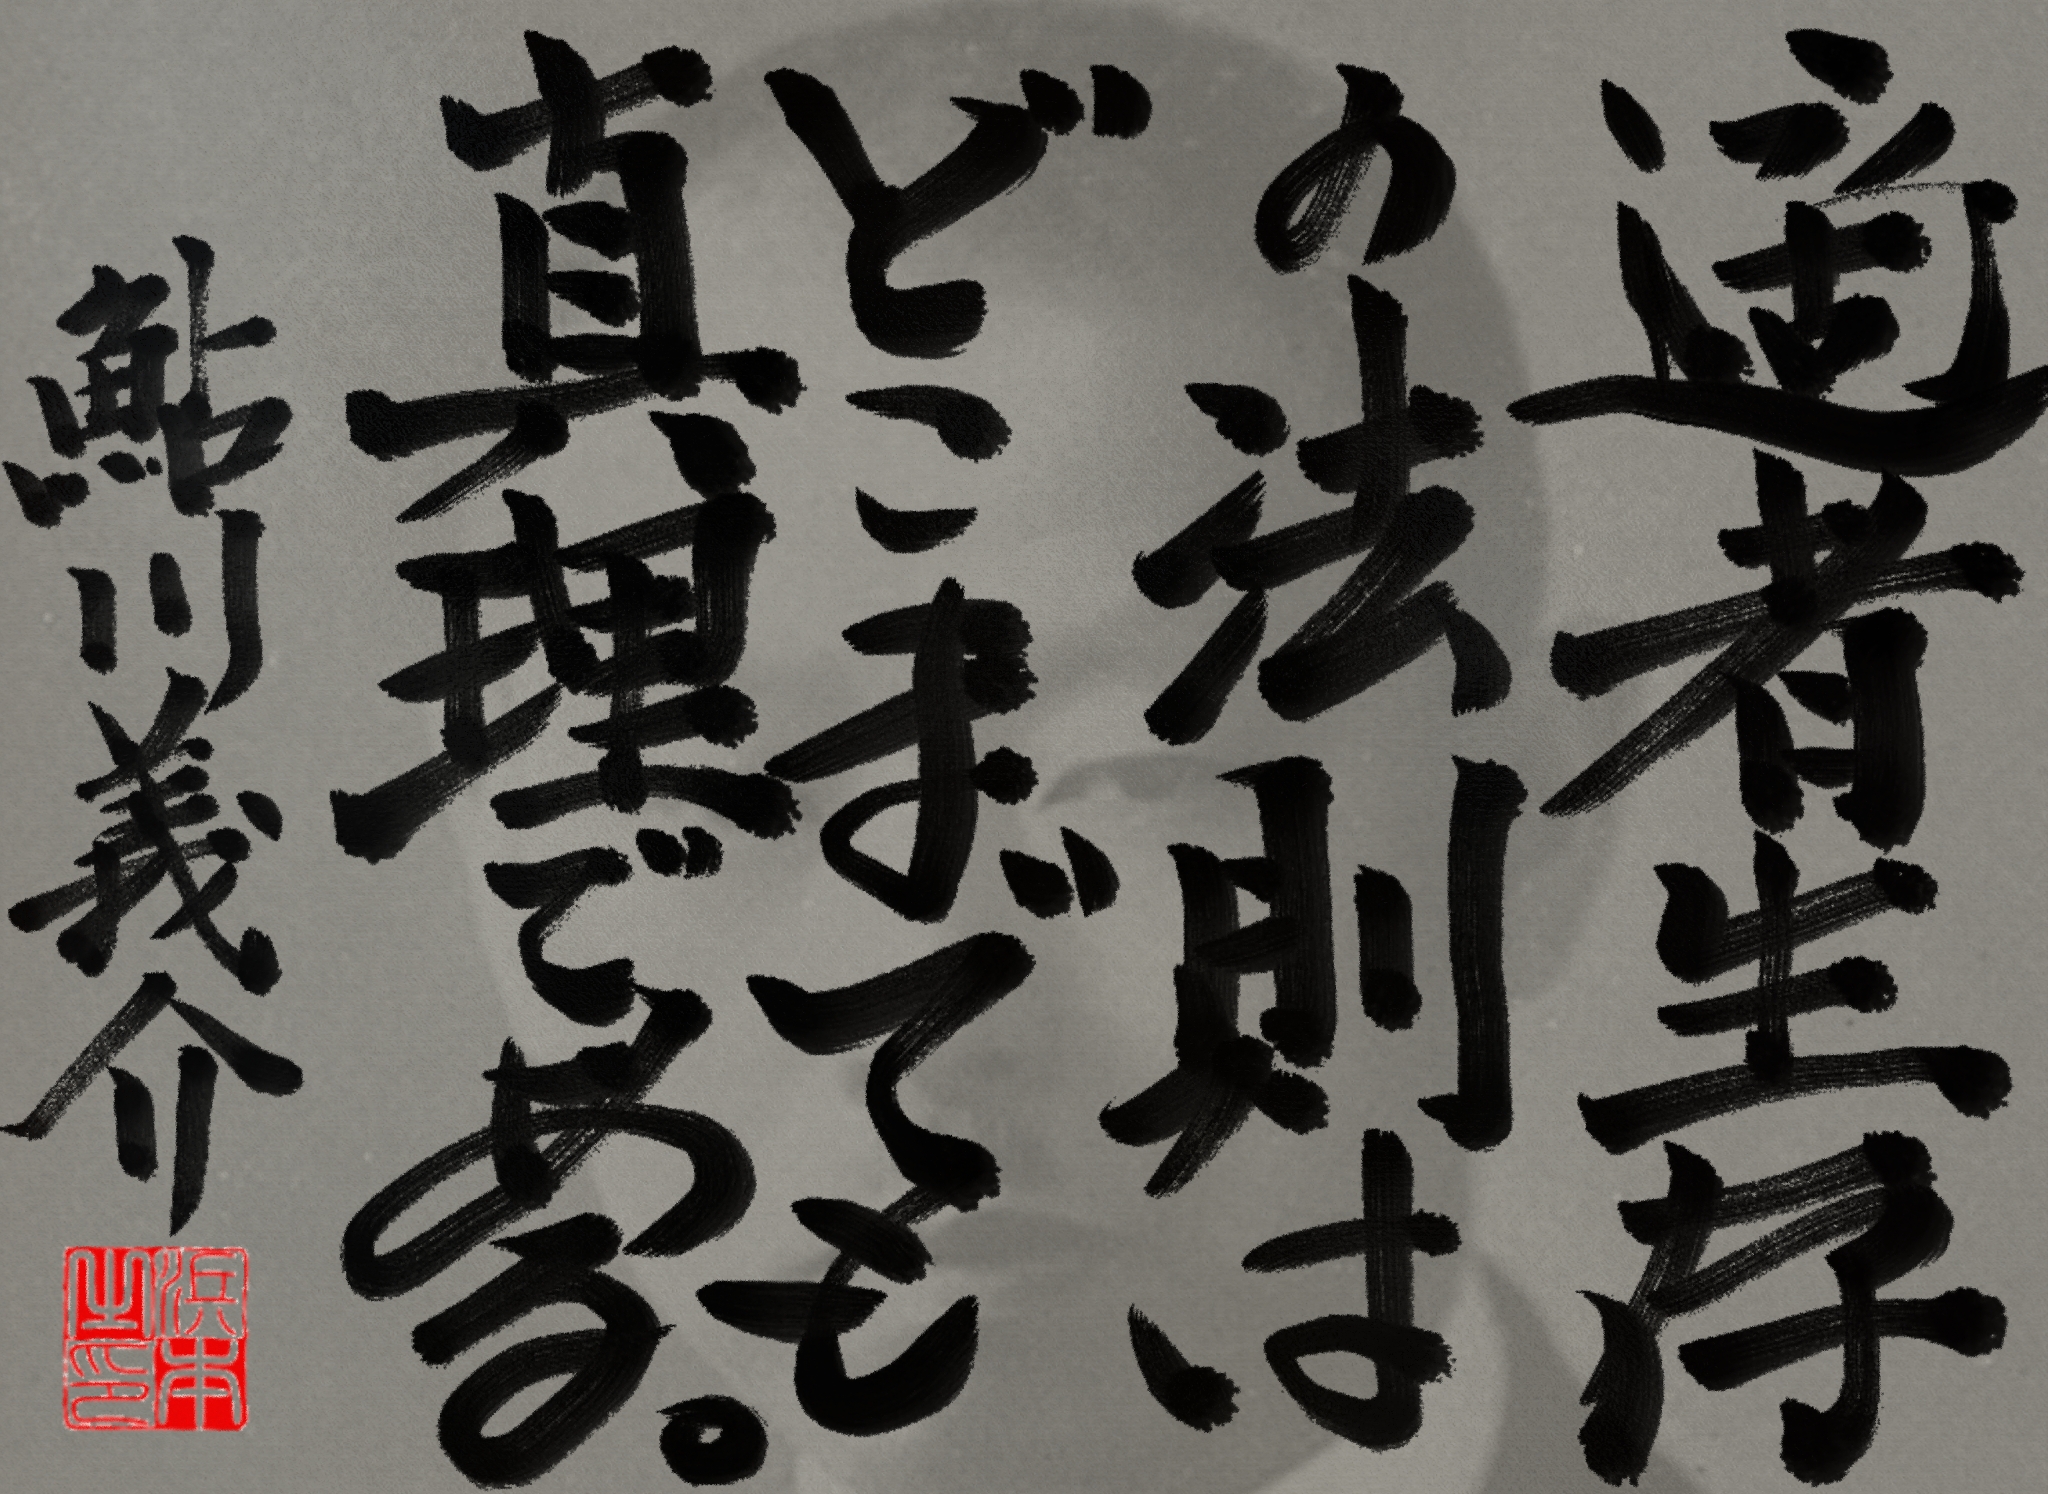 適者生存
の法則は
どこまでも
真理である。
鮎川義介
浜本之印